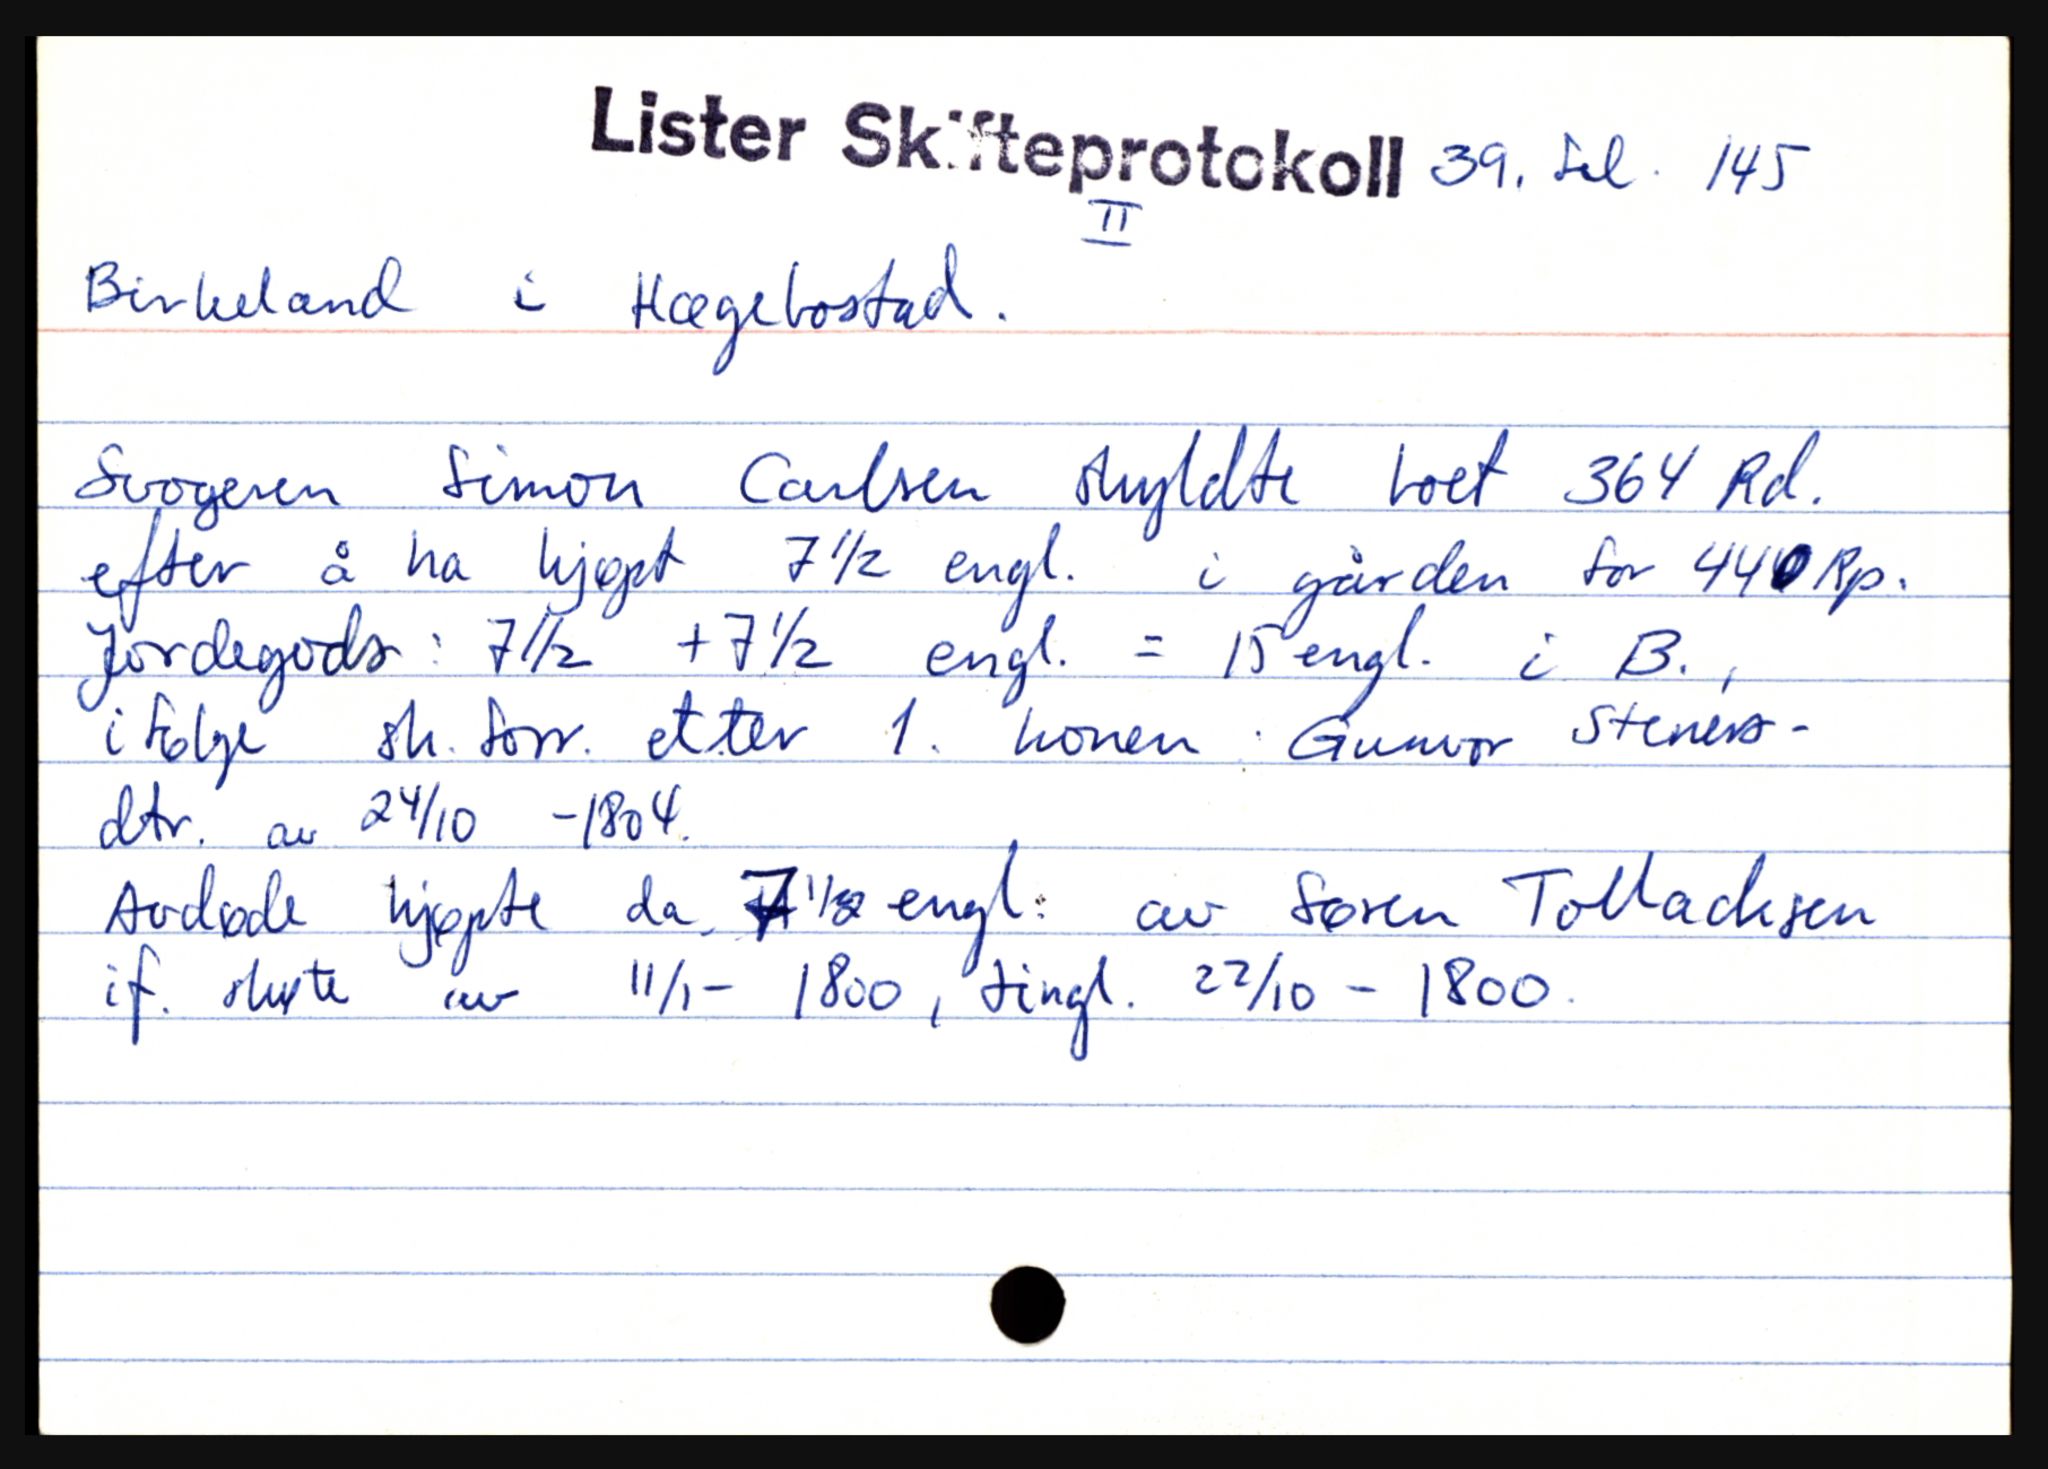 Lister Skifteprotokoll 39, fol. 145
II
Birkeland i Hægebostad.
Svogeren Simon Carlsen skyldte boet 364 Rd.
efter å ha kjøpt 7 1/2 engl. i gården for 440 Rp.
Jordegods: 7 1/2 + 7 1/2 engl. = 15 engl. i B.,
ifølge sk. forr. etter 1. konen Gunvor Steners-
dtr. av 24/10 - 1804.
Avdøde kjøpte da 7 1/2 engl. av Søren Tollachsen
if. skøte av 11/1 - 1800, tingl. 22/10 - 1800.